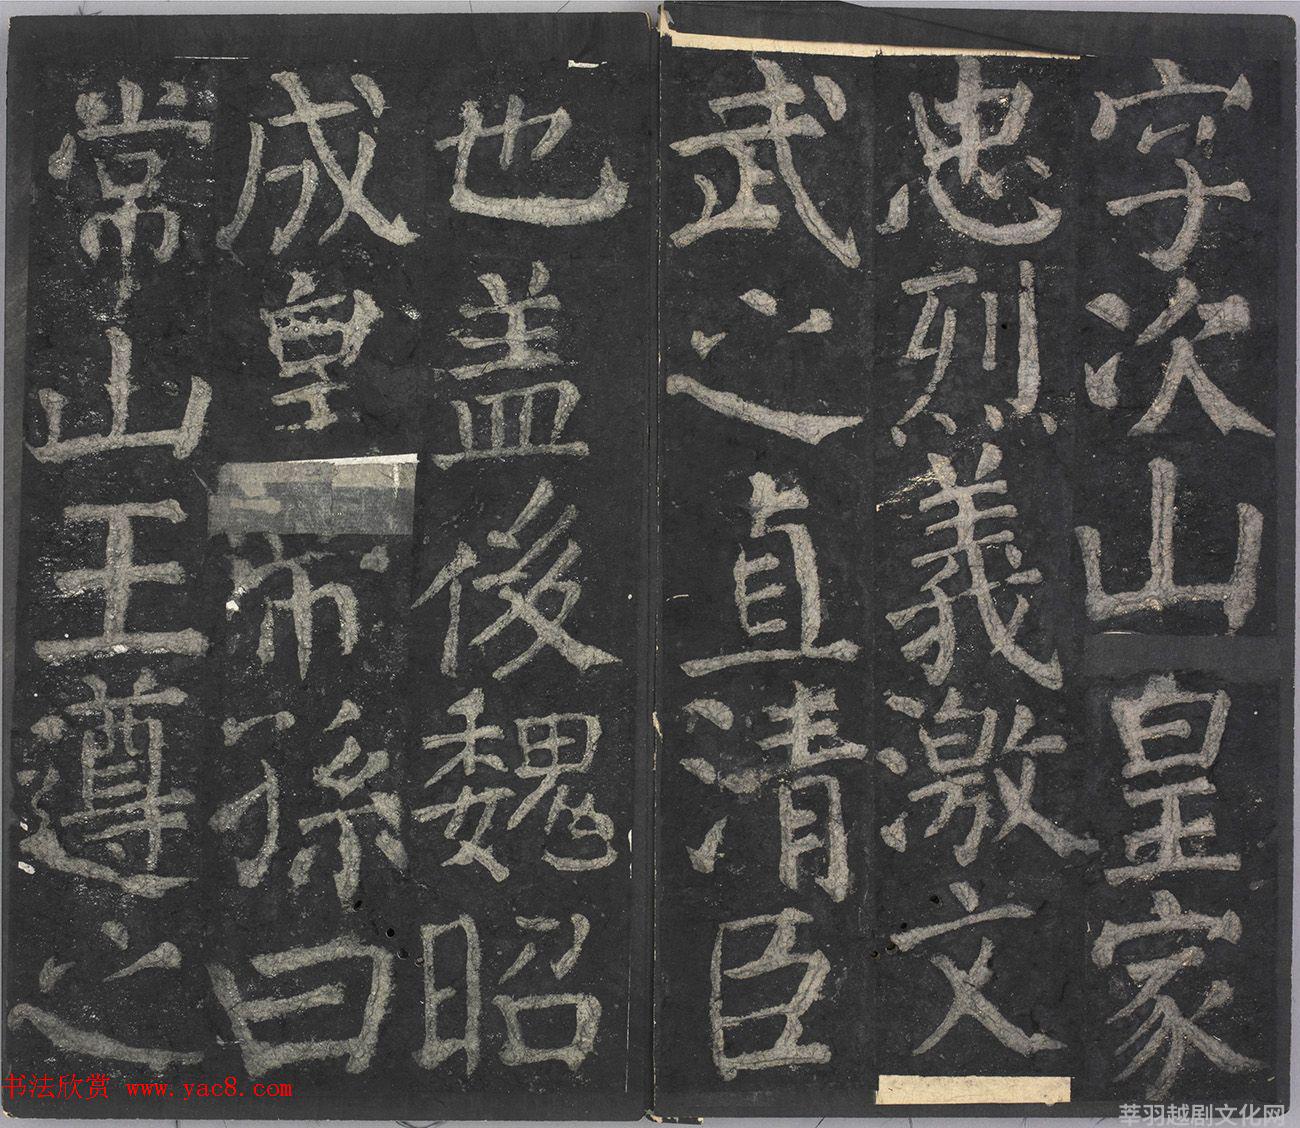 字次山皇家
忠烈義激文
武之直清臣
也盖後魏昭
成皇帝孫曰
常山王遵之
书法欣赏 www.yac8.com
莘羽越剧文化网